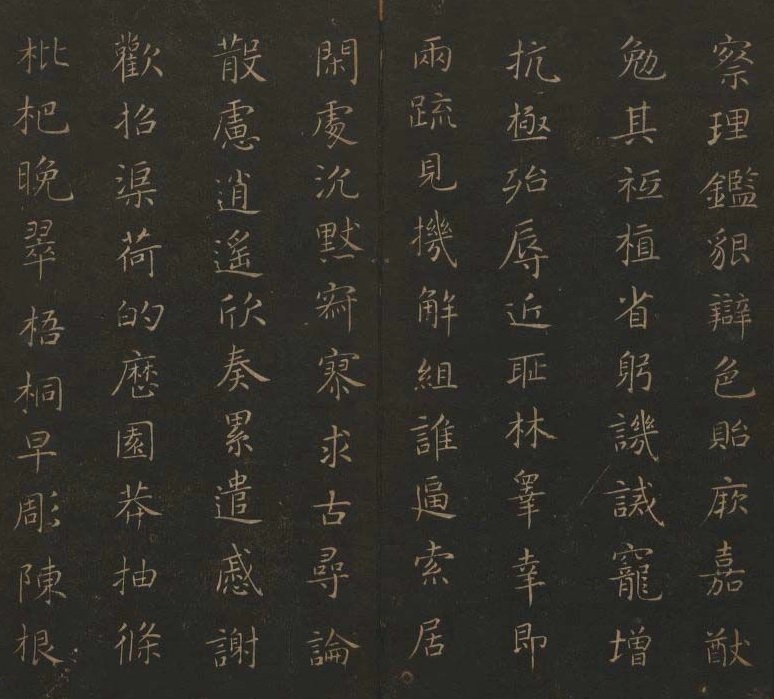 察理鑑貌辯色貽厥嘉猷
勉其祗植省躬譏誡寵增
抗極殆辱近耻林睪幸即
兩疏見機解組誰逼索居
閑處沉默寂寥求古尋論
散慮逍遙欣奏累遣慼謝
歡招渠荷的歷園莽抽條
枇杷晚翠梧桐早彫陳根